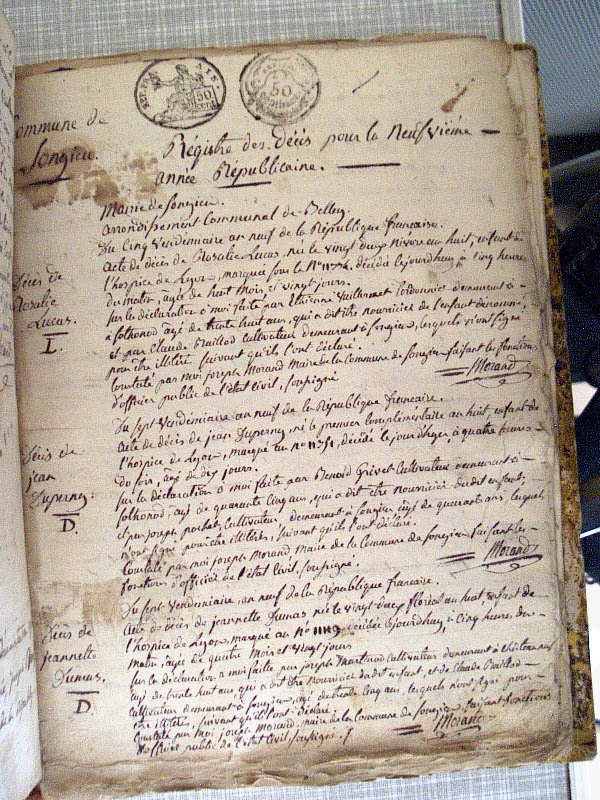 Commune de
Songieu.
Régistre des Décès pour la Neufvième
année Républicaine.
Mairie de Songieu.
arrondissement Communal de Belley.
Du Cinq Vendemiaire an neuf de la République française.
Décès de
Rosalie
Lucas.
L.
Acte de décès de Rosalie Lucas, née le vingt deux nivose an huit, enfant de
l'hospice de Lyon, marquée sous le N° décédée le jourdhuy à cinq heures
du matin, agée de huit mois et vingt jours.
sur la déclaration à moi faite par Etienne demeurant à
Sothonod agé de trente huit ans, qui a dit être nourricier de l'enfant
et par Claude cultivateur demeurant à Songieu, lesquels n'ont signé
pour être illitéré, suivant qu'ils l'ont déclaré.
Constaté par moi joseph Morand Maire de la Commune de Songieu faisant les fonctions
d'officier public de l'état Civil, soussigné
Morand
Du sept Vendémiaire an neuf de la République française.
Décès de
jean
Duperney.
D.
Acte de décès de jean Duperney, né le premier Complémentaire an huit, enfant de
l'hospice de Lyon, marqué au N° 1151, décédé le jour d'hyer à quatre heures
du soir, agé de dix jours.
sur la déclaration à moi faite par Benoid Cultivateur demeurant à
Sothonod, agé de quarente Cinq ans, qui a dit être nourricier dudit enfant;
et par joseph Cultivateur, demeurant à Songieu agé de quarante ans, lesquels
n'ont signé pour être illitérés, suivant qu'ils l'ont déclaré.
Constaté par moi joseph Morand Maire de la Commune de Songieu faisant les
fonctions d'officier de l'état Civil, soussigné.
Morand
Du sept Vendémiaire, an neuf de la République française.
Décès de
jeannette
Dumas.
D.
Acte de décès de jeannette Dumas née le vingt deux floréal an huit, enfant de
l'hospice de Lyon, marqué au N° 1119 décédée le jourdhuy, à Cinq heures du
matin, agée de quatre Mois et vingt jours
sur la déclaration à moi faite par joseph Cultivateur demeurant à
agé de trente huit ans, qui a dit être nourricier dudit enfant, et de Claude
Cultivateur demeurant à Songieu, agé de trente Cinq ans, lesquels n'ont signé pour
être illitéré, suivant qu'ils l'ont déclaré.
Constaté par moi joseph Morand, maire de la Commune de Songieu faisant fonctions
d'officier public de l'état Civil, soussigné.
Morand